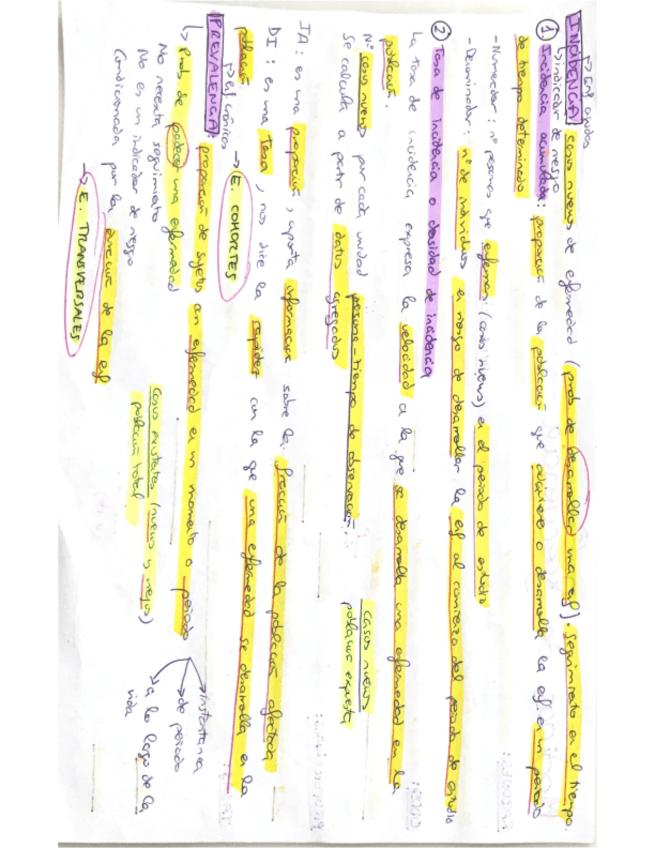 → enf. agudas
INCIDENCIA: casos nuevos de enfermedad (prob de desarrollar una enf). Seguimiento en el tiempo.
↳ indicador de riesgo
① Incidencia acumulada: proporción de la población que adquiere o desarrolla la enf. en un periodo
de tiempo determinado
- Numerador: nº personas que enferman (casos nuevos) en el periodo de estudio
- Denominador: nº de individuos en riesgo de desarrollar la enf al comienzo del periodo de estudio
② Tasa de incidencia o densidad de incidencia
La tasa de incidencia expresa la velocidad a la que se desarrolla una enfermedad en la
población.
Nº casos nuevos por cada unidad persona-tiempo de observación.
Se calcula a partir de datos agregados
casos nuevos
población expuesta
IA: es una proporción, aporta información sobre la fracción de la población afectada
DI: es una tasa, nos dice la rapidez con la que una enfermedad se desarrolla en la
población
→ E. COHORTES
→ enf. crónicas
PREVALENCIA: proporción de sujetos con enfermedad en un momento o periodo
↳ Prob de padecer una enfermedad
No necesita seguimiento
No es un indicador de riesgo
Condicionada por la duración de la enf
→ E. TRANSVERSALES
casos existentes (nuevos y viejos)
población total
→ instantánea
→ de periodo
→ a lo largo de la
vida